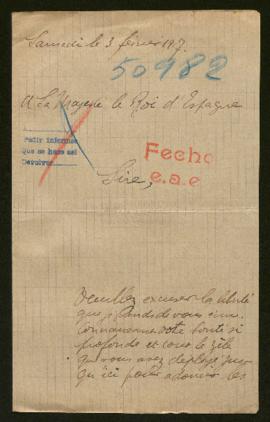 Samedi le 3 février 1917.
50982
A Sa Majesté le Roi d'Espagne
Pedir informes
Que se hace así
Devolver
Fecho
e.a.e
Sire,
Veuillez excuser la liberté
que je prends de vous
votre bonté si
profonde et tout le zèle
que vous avez déployé jus
qu'ici pour adoucir les